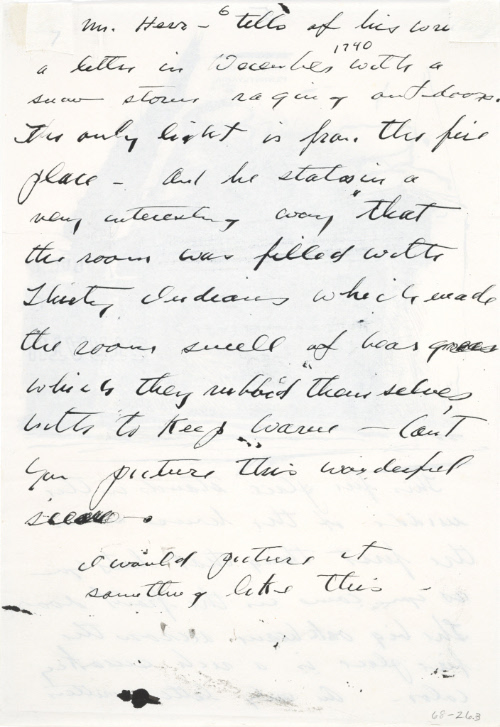 Mr. Herr – 6 tells of his
a letter in December 1740 with a
snow storm raging outdoors.
The only light is from the fire
place – and he states in a
very interesting way "that
the room was filled with
thirty Indians which made
the room smell of bear grease
which they rubbed" themselves
with to keep warm – Can't
you picture this wonderful
scene.
I would picture it
something like this –
68-263